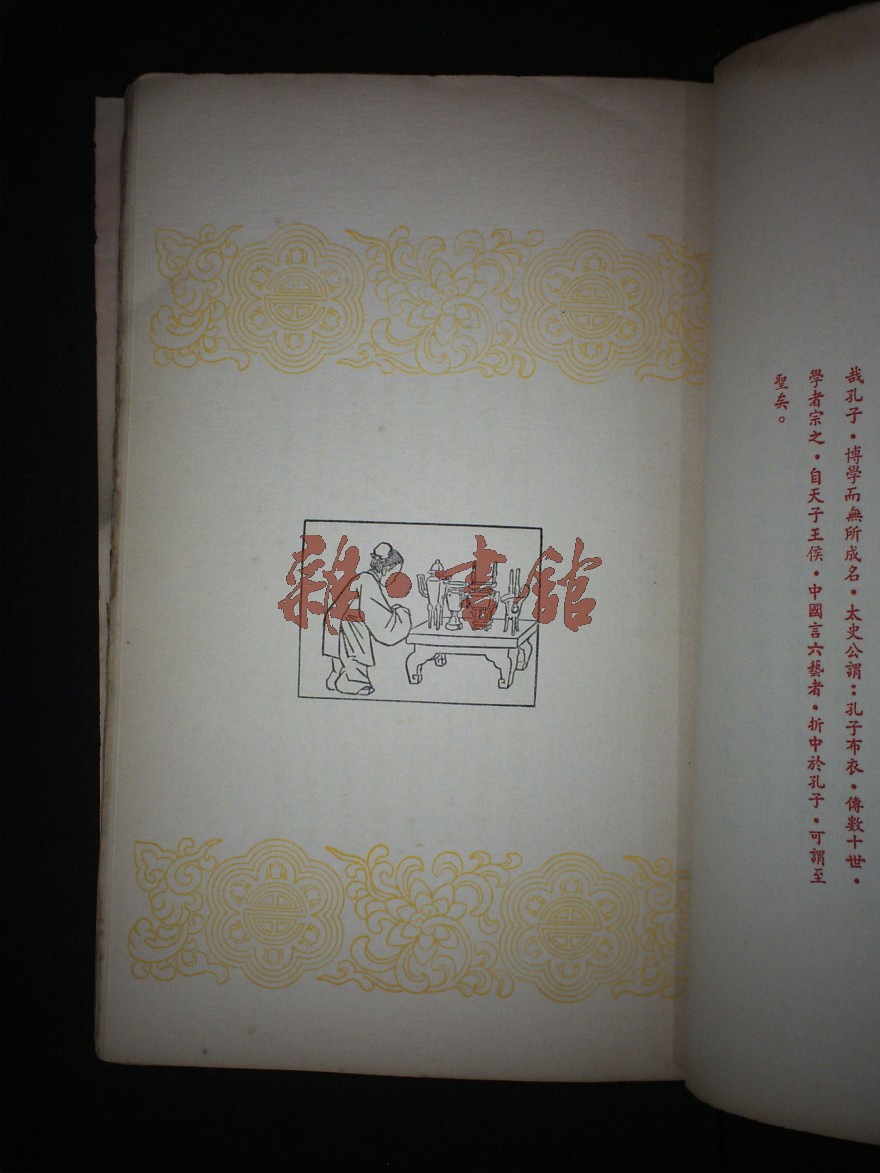 哉孔子．博學而無所成名．太史公謂：孔子布衣．傳數十世．
學者宗之．自天子王侯．中國言六藝者．折中於孔子．可謂至
聖矣。
雜·書館